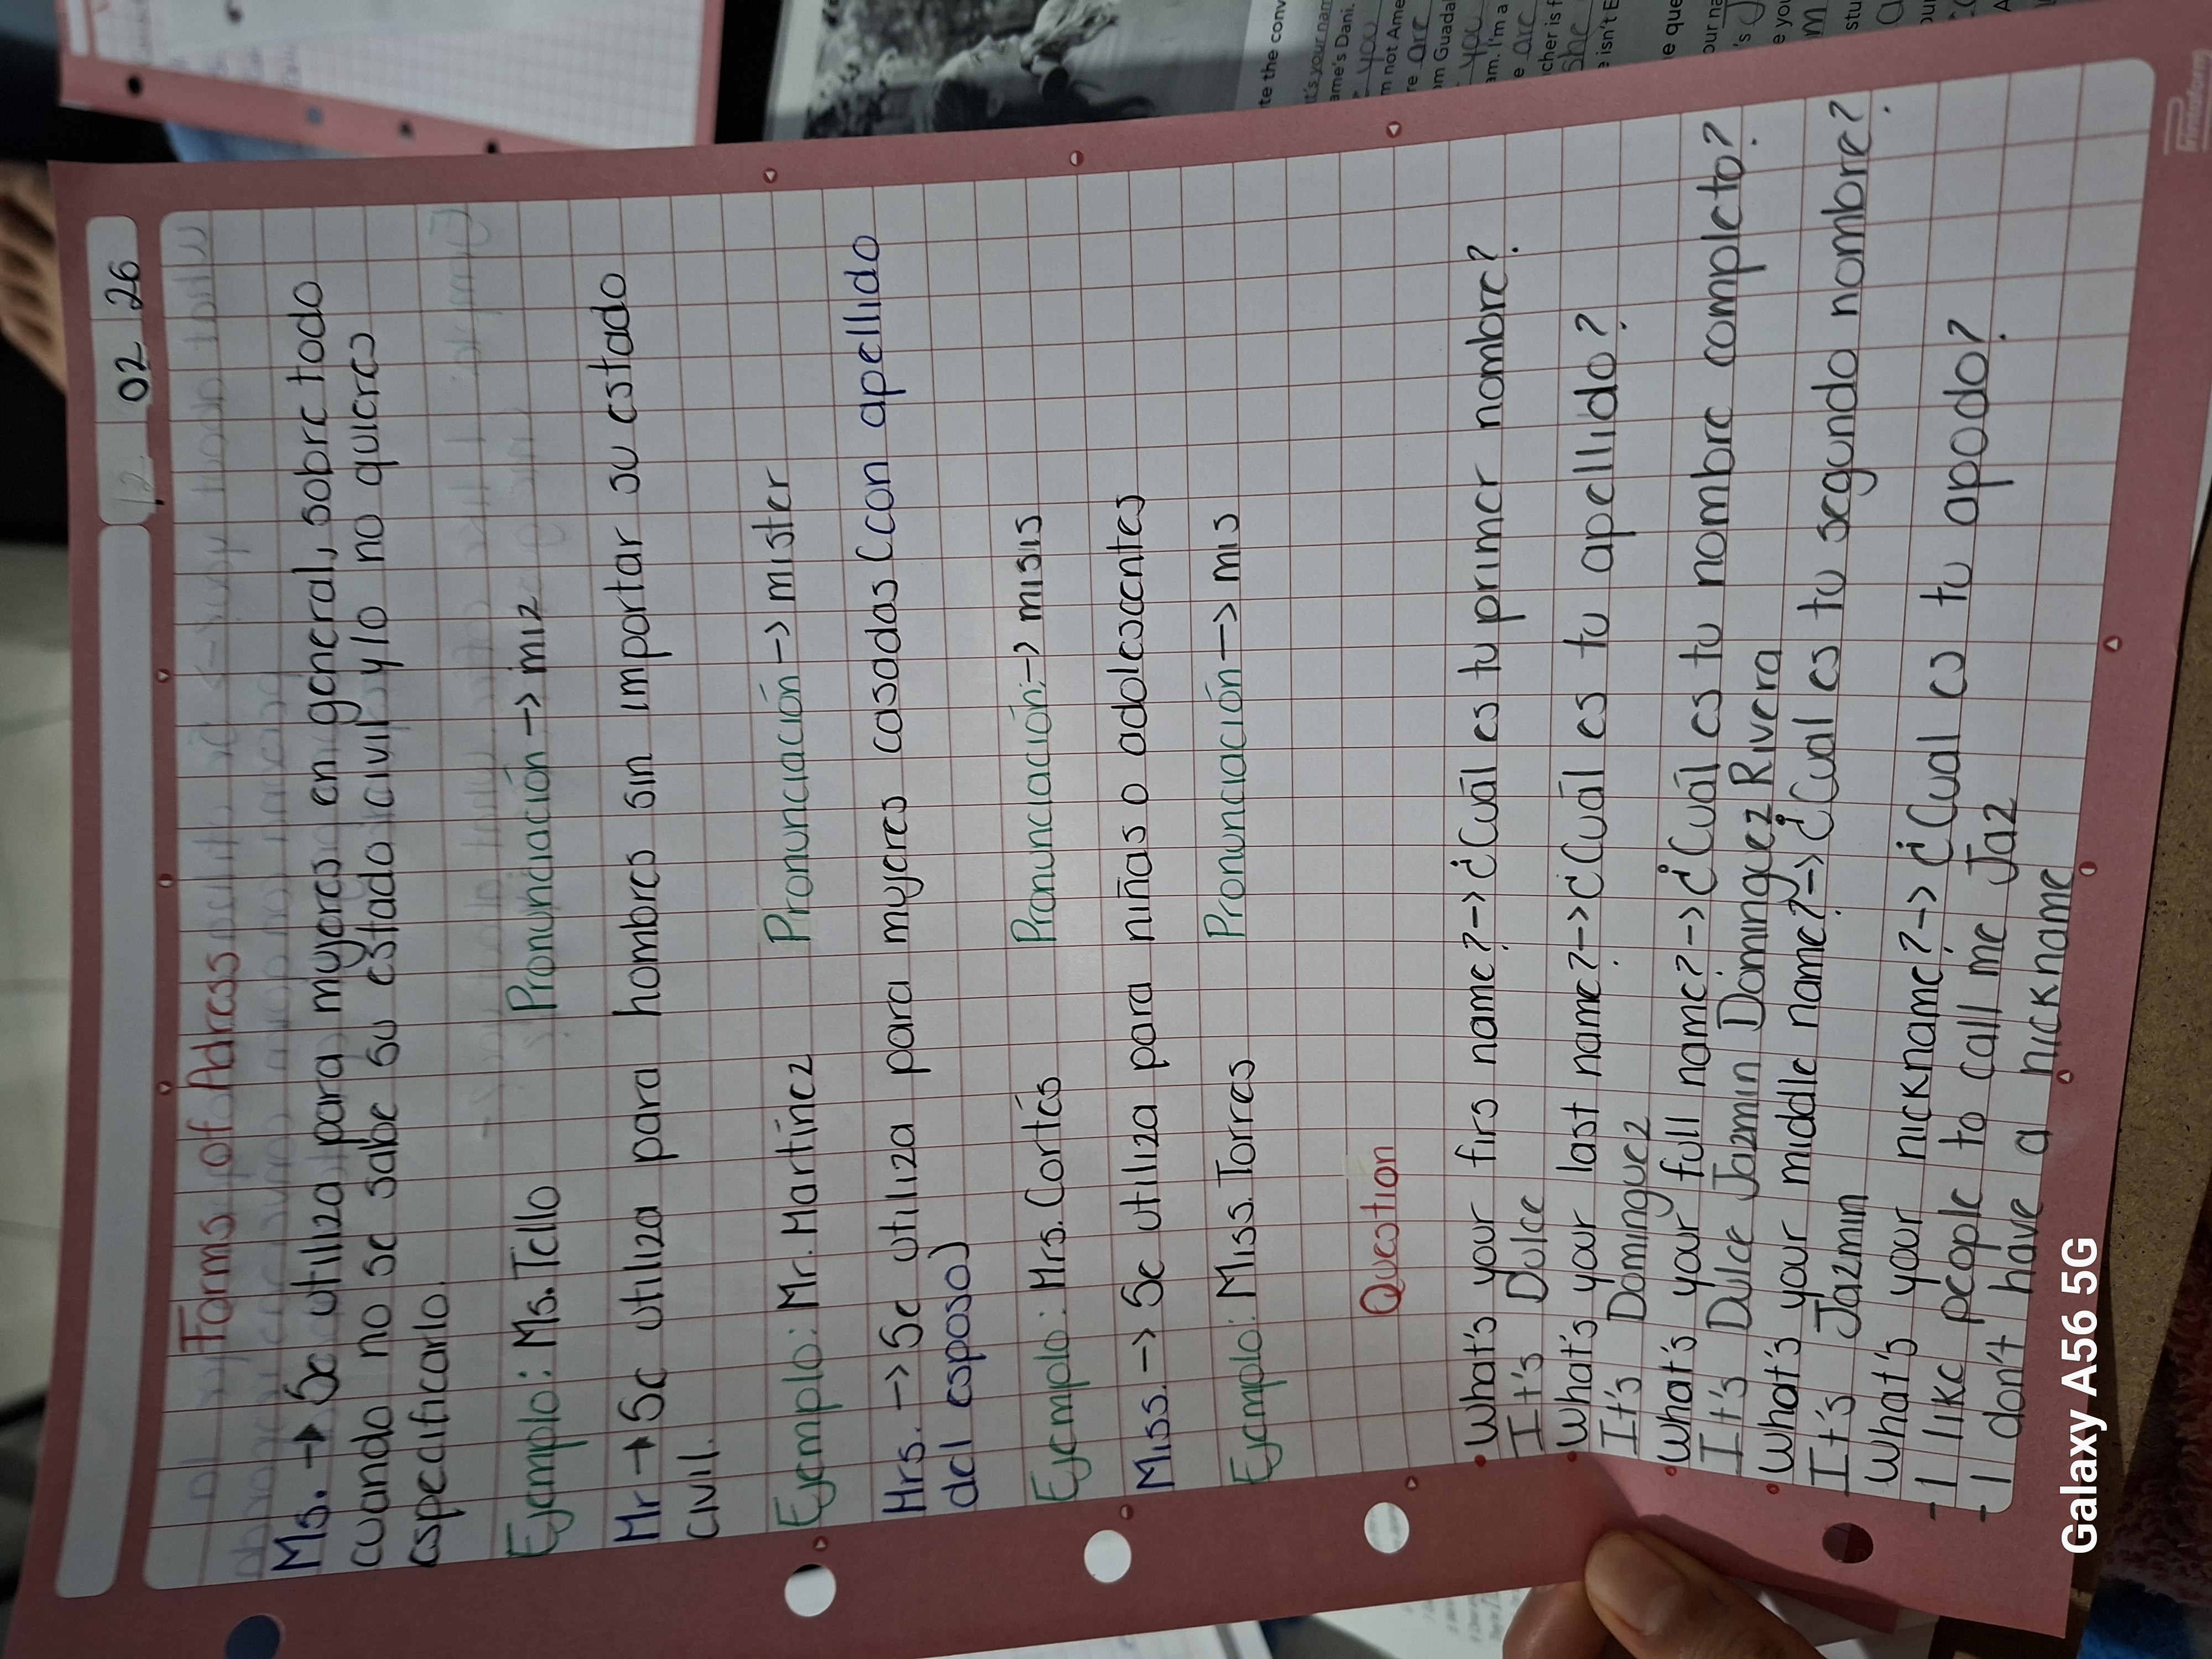 12 02 26
Forms of Adress
Ms. → Se utiliza para mujeres en general, sobre todo
cuando no se sabe su estado civil y/o no quieres
especificarlo.
Ejemplo: Ms. Tello Pronunciación → miz
Mr → Se utiliza para hombres sin importar su estado
civil.
Ejemplo: Mr. Martínez Pronunciación → mister
Mrs. → Se utiliza para mujeres casadas (con apellido
del esposo)
Ejemplo: Mrs. Cortés Pronunciación: → misis
Miss. → Se utiliza para niñas o adolescentes
Ejemplo: Miss. Torres Pronunciación → mis
Question
• What's your firs name? → ¿Cuál es tu primer nombre?
It's Dulce
• What's your last name? → ¿Cuál es tu apellido?
It's Dominguez
• What's your full name? → ¿Cuál es tu nombre completo?
It's Dulce Jazmin Dominguez Rivera
• What's your middle name? → ¿Cual es tu segundo nombre?
It's Jazmin
What's your nickname? → ¿Cual es tu apodo?
- I like people to call me Jaz
- I don't have a nickname
Printaform
te the conv
t's your nam
ame's Dani.
you
m not Ame
re are
om Guadal
you
am. I'm a
e are
cher is f
she
e isn't E
e que
our na
's
e you
stu
Galaxy A56 5G